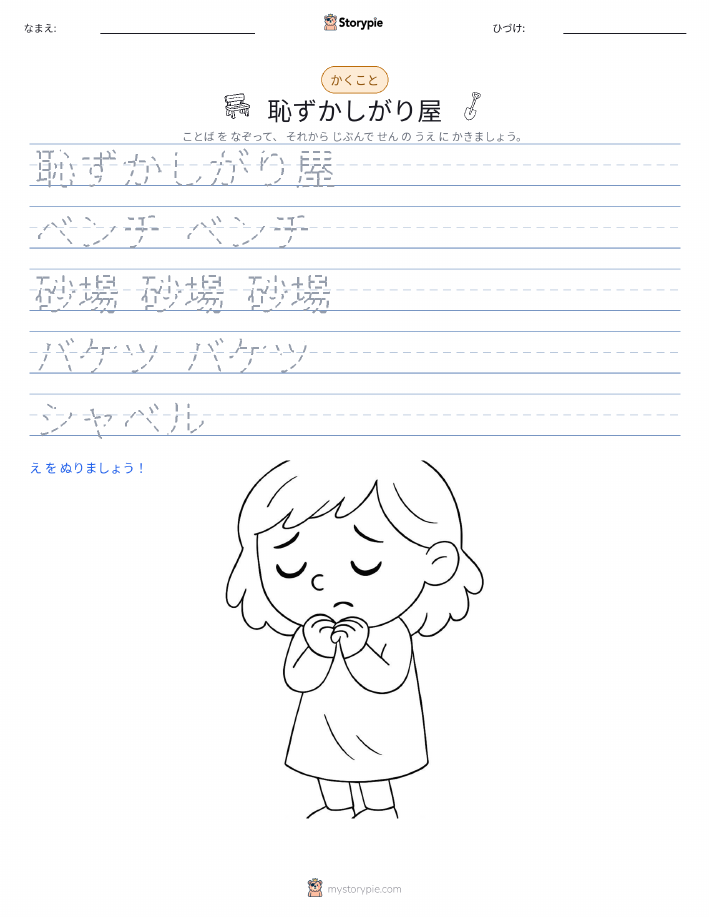 なまえ:
Storypie
ひづけ:
かくこと
恥ずかしがり屋
ことば を なぞって、 それから じぶんで せん の うえ に かきましょう。
恥ずかしがり屋
ベンチ ベンチ
砂場 砂場 砂場
バケツ バケツ
シャベル
え を ぬりましょう！
mystorypie.com